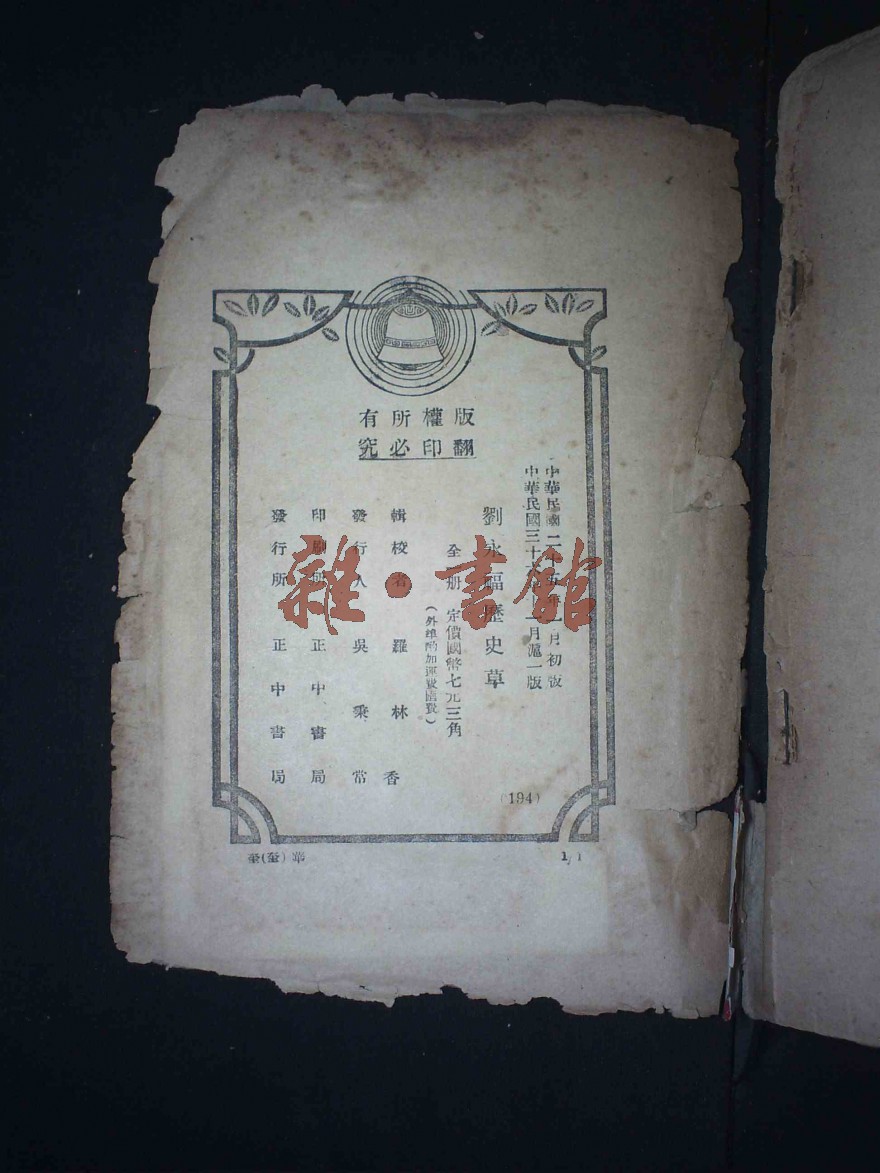 版權所有
翻印必究
中華民國二十五年 月初版
中華民國三十六年十一月滬一版
劉永福歷史草
全一册 定價國幣七元三角
(外埠酌加運費匯費)
輯校者 羅林香
發行人 吳秉常
印刷所 正中書局
發行所 正中書局
(194)
華(蚕)
1/1
雜·書館